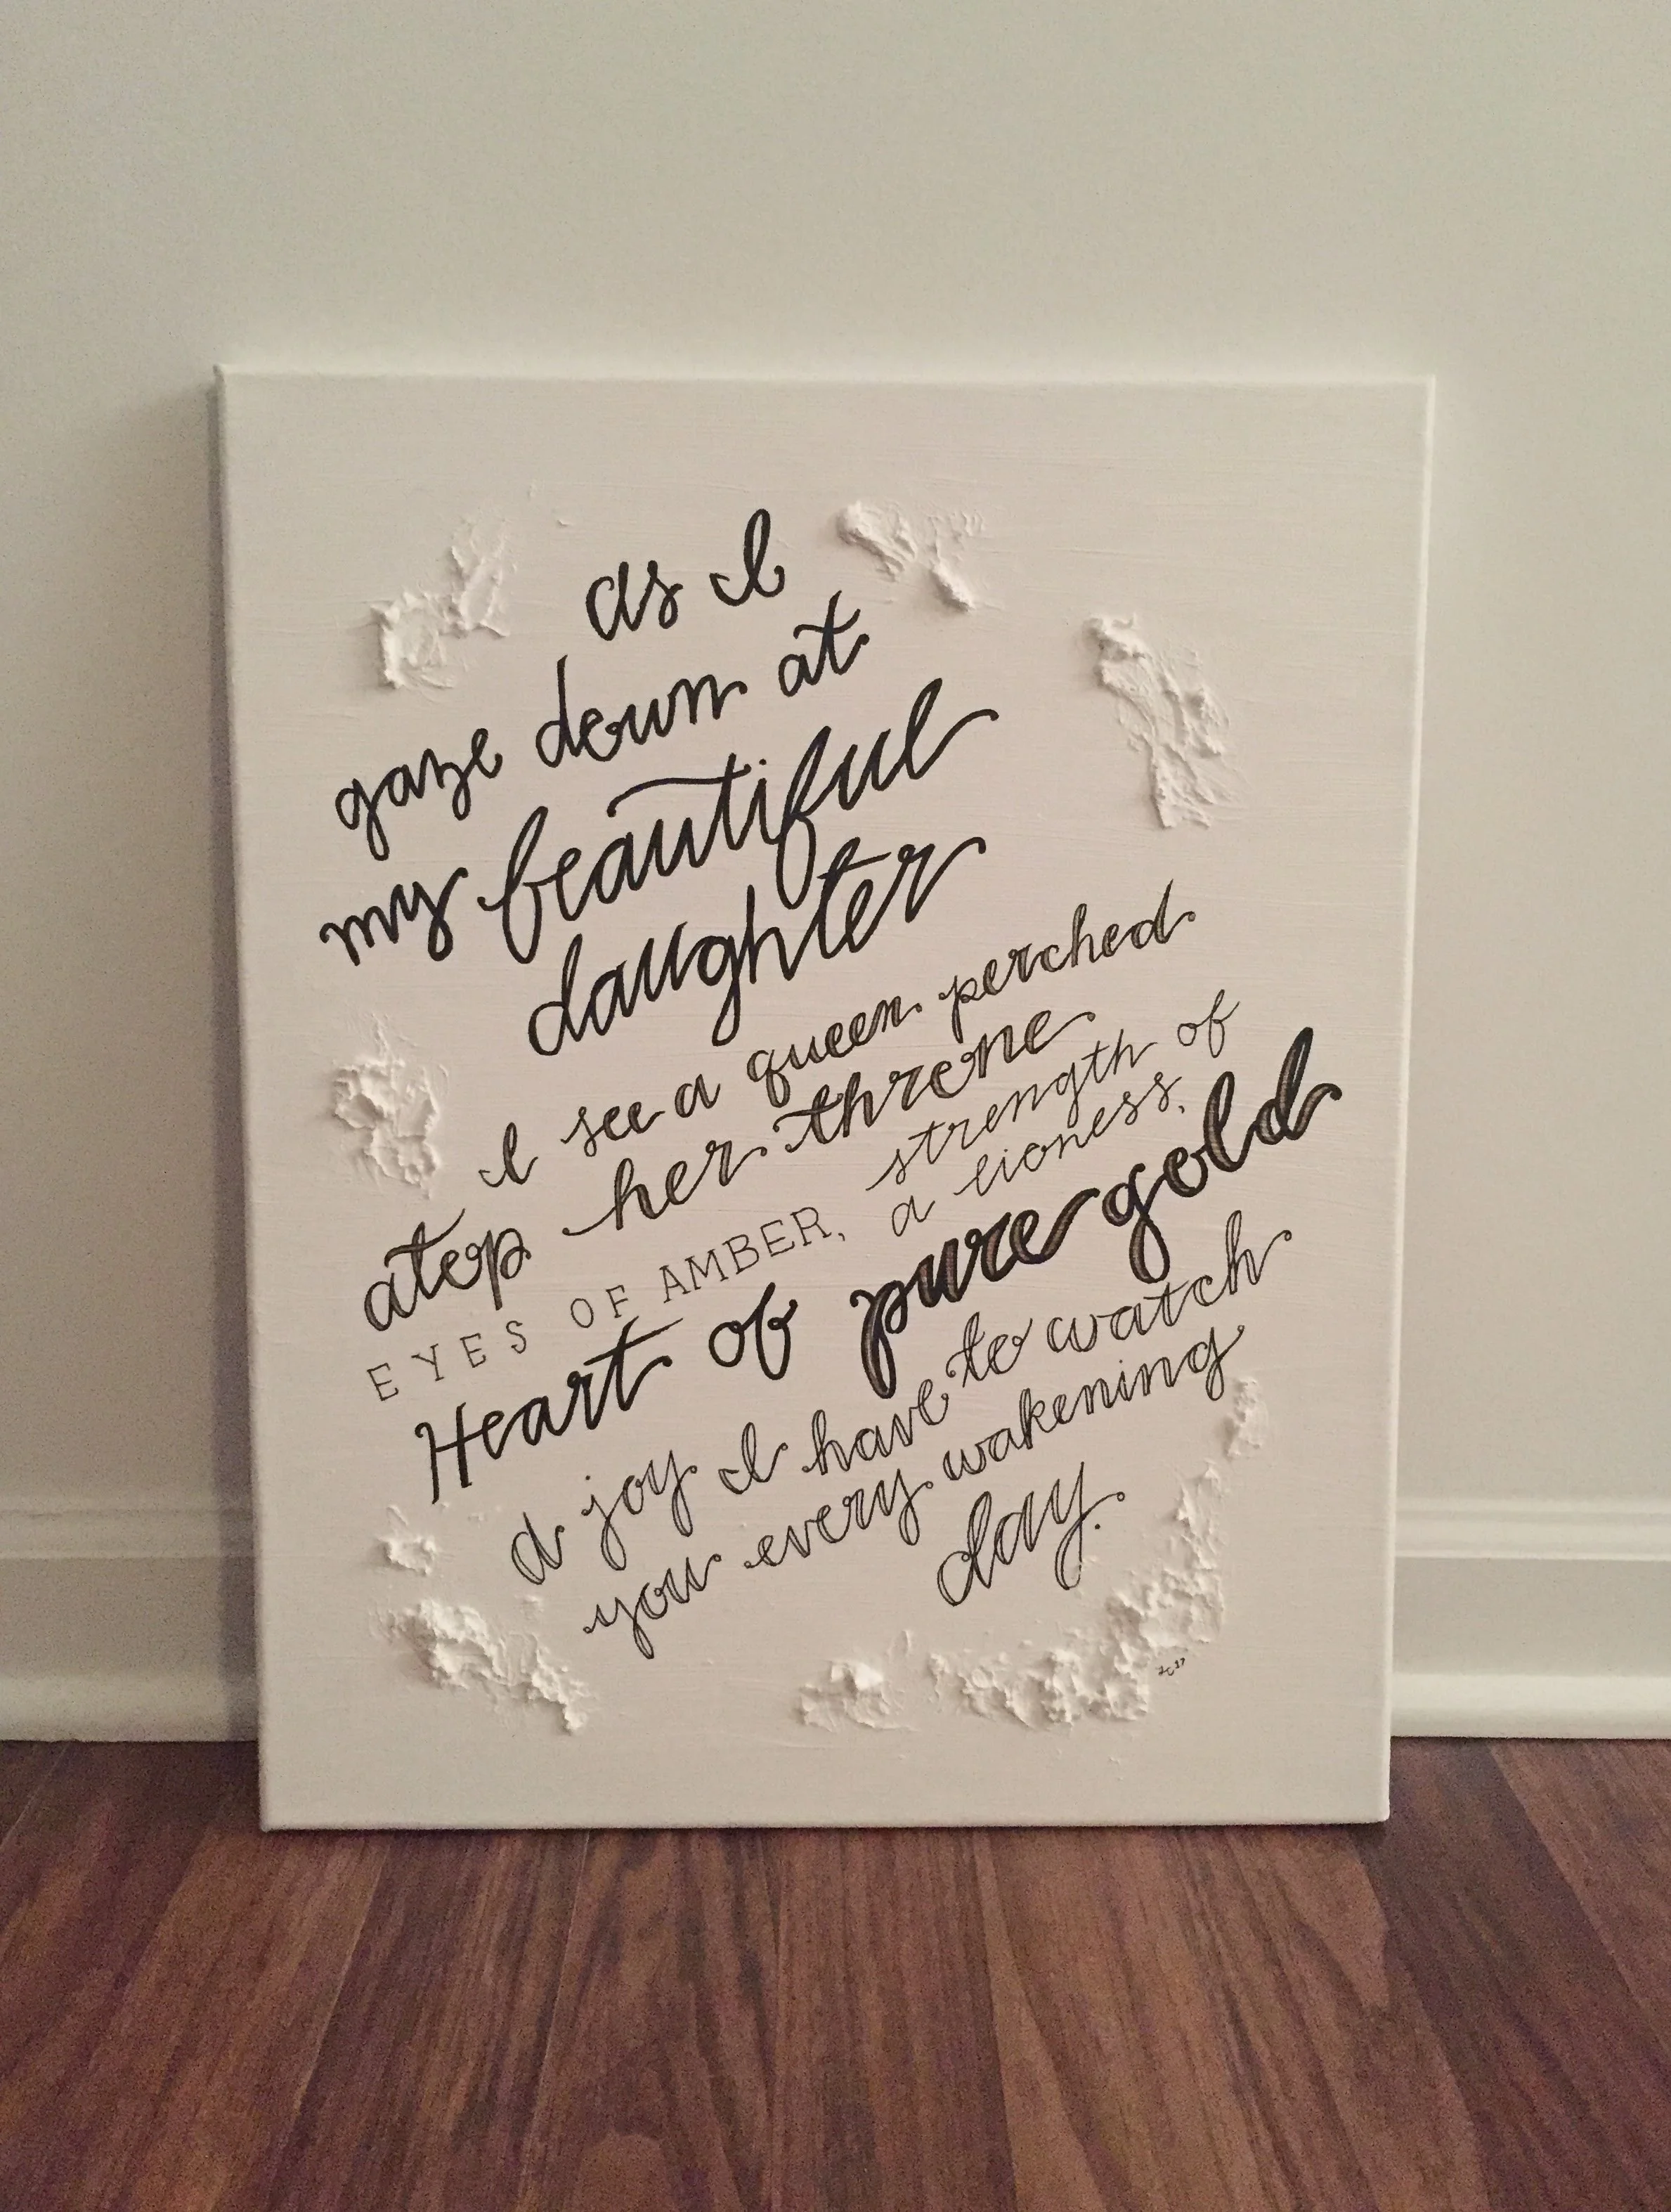 as I
gaze down at
my beautiful
daughter
I see a queen perched
atop her throne
EYES OF AMBER, strength of
a lioness,
Heart of pure gold
a joy I have to watch
you every wakening
day.